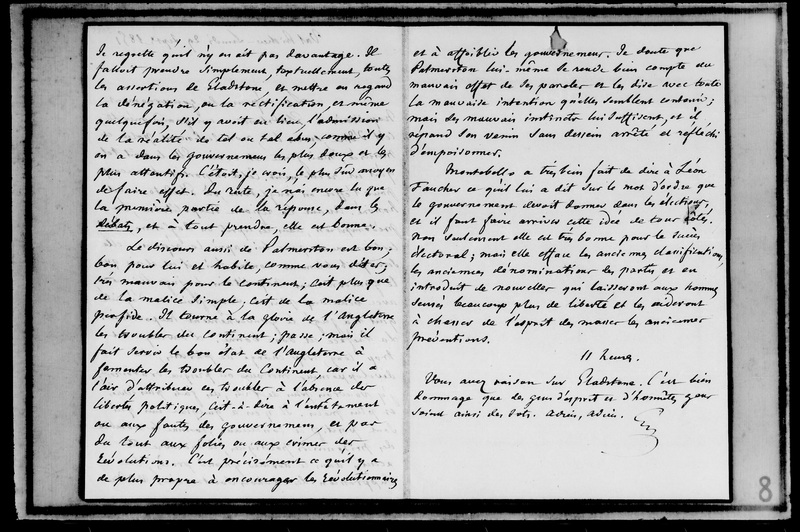 Je regrette qu'il n'y en ait pas davantage. Il
falloit prendre simplement, textuellement, toutes
les assertions de Gladstone, et mettre en regard
la dénégation, ou la rectification, et même
quelquefois, s'il y avoit eu lieu, l'admission
de la réalité de tel ou tel abus, comme il y
en a dans les gouvernemens les plus doux et les
plus attentifs. C'étoit, je crois, le plus sûr moyen
de faire effet. Du reste, je n'ai encore lu que
la première partie de la réponse, dans les
Débats, et à tout prendre, elle est bonne.
Le discours aussi de Palmerston est bon;
bon pour lui et habile, comme vous dites;
très mauvais pour le continent; c'est plus que
de la malice simple; c'est de la malice
perfide. Il tourne à la gloire de l'Angleterre
les troubles du Continent; passe; mais il
fait servir le bon état de l'Angleterre à
fomenter les troubles du Continent, car il a
l'air d'attribuer ces troubles à l'absence des
libertés politiques, c'est-à-dire à l'entêtement
ou aux fautes des gouvernemens, et pas
du tout aux folies ou aux crimes des
révolutions. C'est précisément ce qu'il y a
de plus propre à encourager les révolutionnaires
et à affoiblir les gouvernemens. Je doute que
Palmerston lui-même se rende bien compte du
mauvais effet de ses paroles et les dise avec toute
la mauvaise intention qu'elles semblent contenir;
mais ses mauvais instincts lui suffisent, et il
répand son venin sans dessein arrêté et réfléchi
d'empoisonner.
Montebello a très bien fait de dire à Léon
Faucher ce qu'il lui a dit sur le mot d'ordre que
le gouvernement devoit donner dans les élections,
et il faut faire arriver cette idée de tous côtés.
Non seulement elle est très bonne pour le succès
électoral; mais elle efface les anciennes classifications,
les anciennes dénominations des partis et en
introduit de nouvelles qui laisseront aux hommes
sensés beaucoup plus de liberté et les aideront
à chasser de l'esprit des masses les anciennes
préventions.
11 heures.
Vous avez raison sur Gladstone. C'est bien
dommage que des gens d'esprit et d'honnêtes gens
soient ainsi des sots. Adieu, adieu.
8